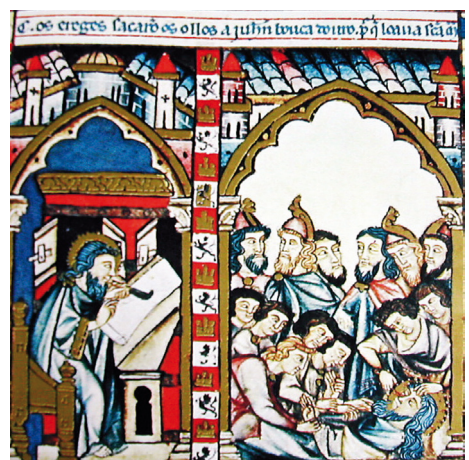 C. os ereges sacarõ os ollos a johñ bouca douro. p̃q̃ loaua scã m